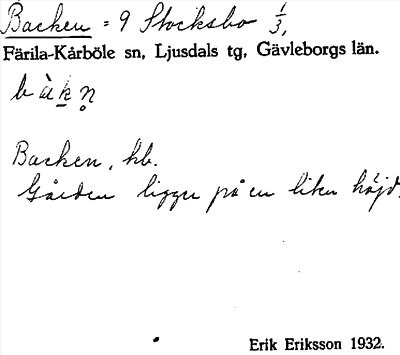 Backen = 9 Stocksbo 1/3,
Färila-Kårbole sn, Ljusdals tg, Gävleborgs län.
bàkn̥
Backen, hb.
Gården ligger på en liten höjd.
Erik Eriksson 1932.